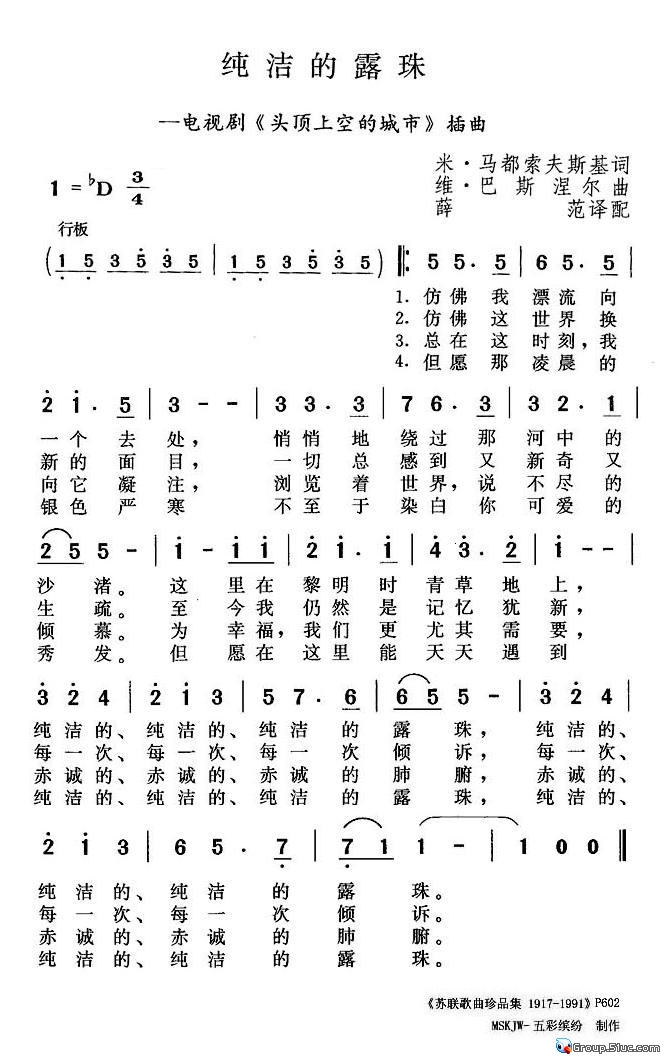 纯洁的露珠
—电视剧《头顶上空的城市》插曲
米·马都索夫斯基词
1=♭D 3/4 维·巴斯涅尔曲
薛 范译配
行板
(1 5 3 5 3 5 | 1 5 3 5 3 5) ‖: 5 5. 5 | 6 5. 5 |
1. 仿佛我漂流向
2. 仿佛这世界换
3. 总在这时刻，我
4. 但愿那凌晨的
2 1. 5 | 3 - - | 3 3. 3 | 7 6. 3 | 3 2. 1 |
一个去处， 悄悄地绕过那河中的
新的面目， 一切总感到又新奇又
向它凝注， 浏览着世界，说不尽的
银色严寒 不至于染白你可爱的
2 5 5 - | 1 - 1 1 | 2 1. 1 | 4 3. 2 | 1 - - |
沙渚。这里在黎明时青草地上，
生疏。至今我仍然是记忆犹新，
倾慕。为幸福，我们更尤其需要，
秀发。但愿在这里能天天遇到
3 2 4 | 2 1 3 | 5 7. 6 | 6 5 5 - | 3 2 4 |
纯洁的、纯洁的、纯洁的露珠，纯洁的、
每一次、每一次、每一次倾诉，每一次、
赤诚的、赤诚的、赤诚的肺腑，赤诚的、
纯洁的、纯洁的、纯洁的露珠，纯洁的、
2 1 3 | 6 5. 7 | 7 1 1 - | 1 0 0 ‖
纯洁的、纯洁的露珠。
每一次、每一次倾诉。
赤诚的、赤诚的肺腑。
纯洁的、纯洁的露珠。
《苏联歌曲珍品集 1917-1991》P602
MSKJW-五彩缤纷 制作
Group.5luc.com